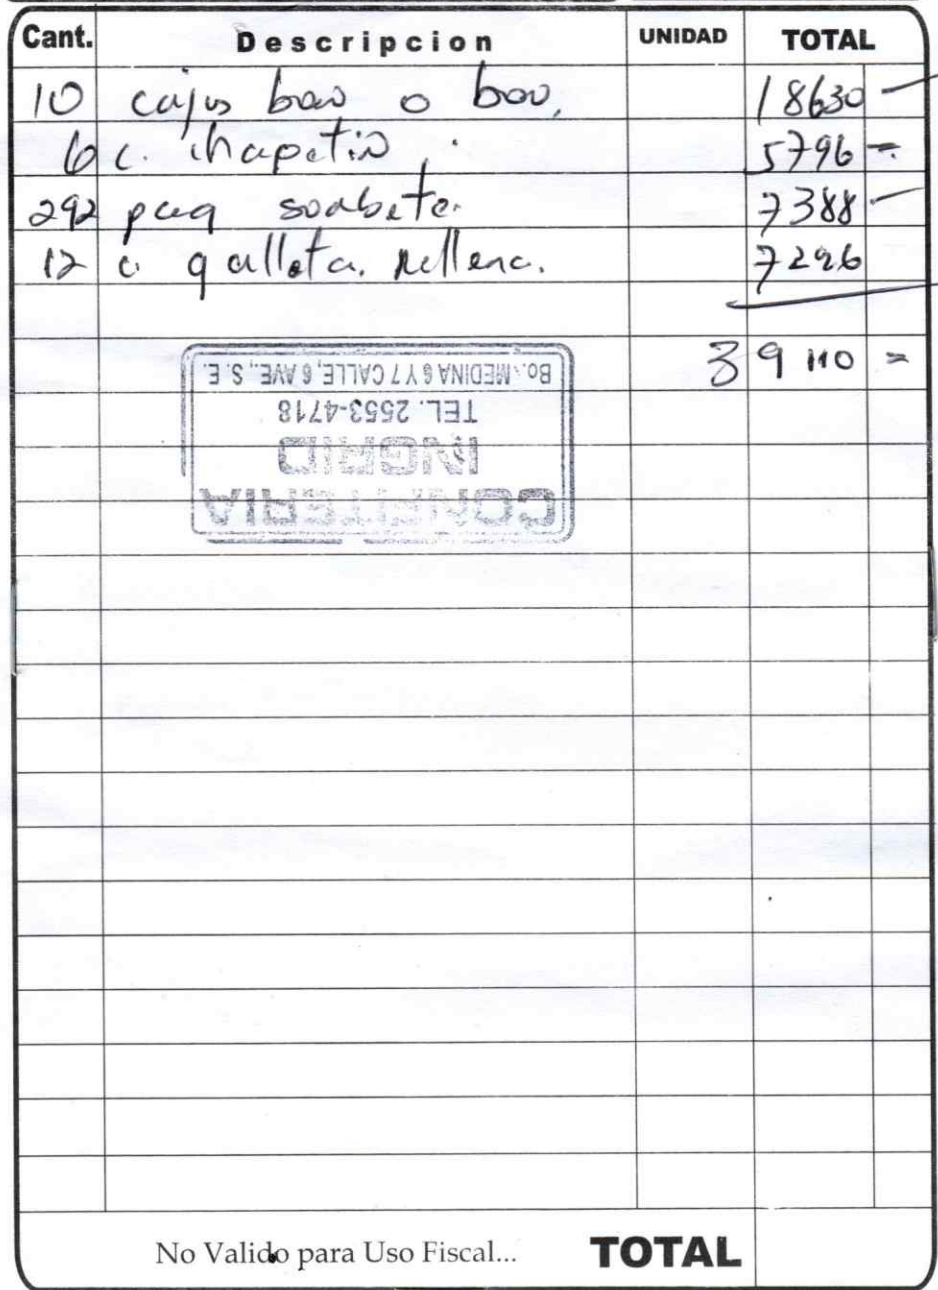 Cant. Descripcion UNIDAD TOTAL
10 cajas boo o boo, 18630
6 c. chapetin. 5796 =
292 paq soabete. 7388
12 c. galleta. rellena. 7296
39 110 =
CONFITERIA
INGRID
TEL. 2553-4718
Bo. MEDINA 6 Y 7 CALLE, 6 AVE., S. E.
No Valido para Uso Fiscal... TOTAL